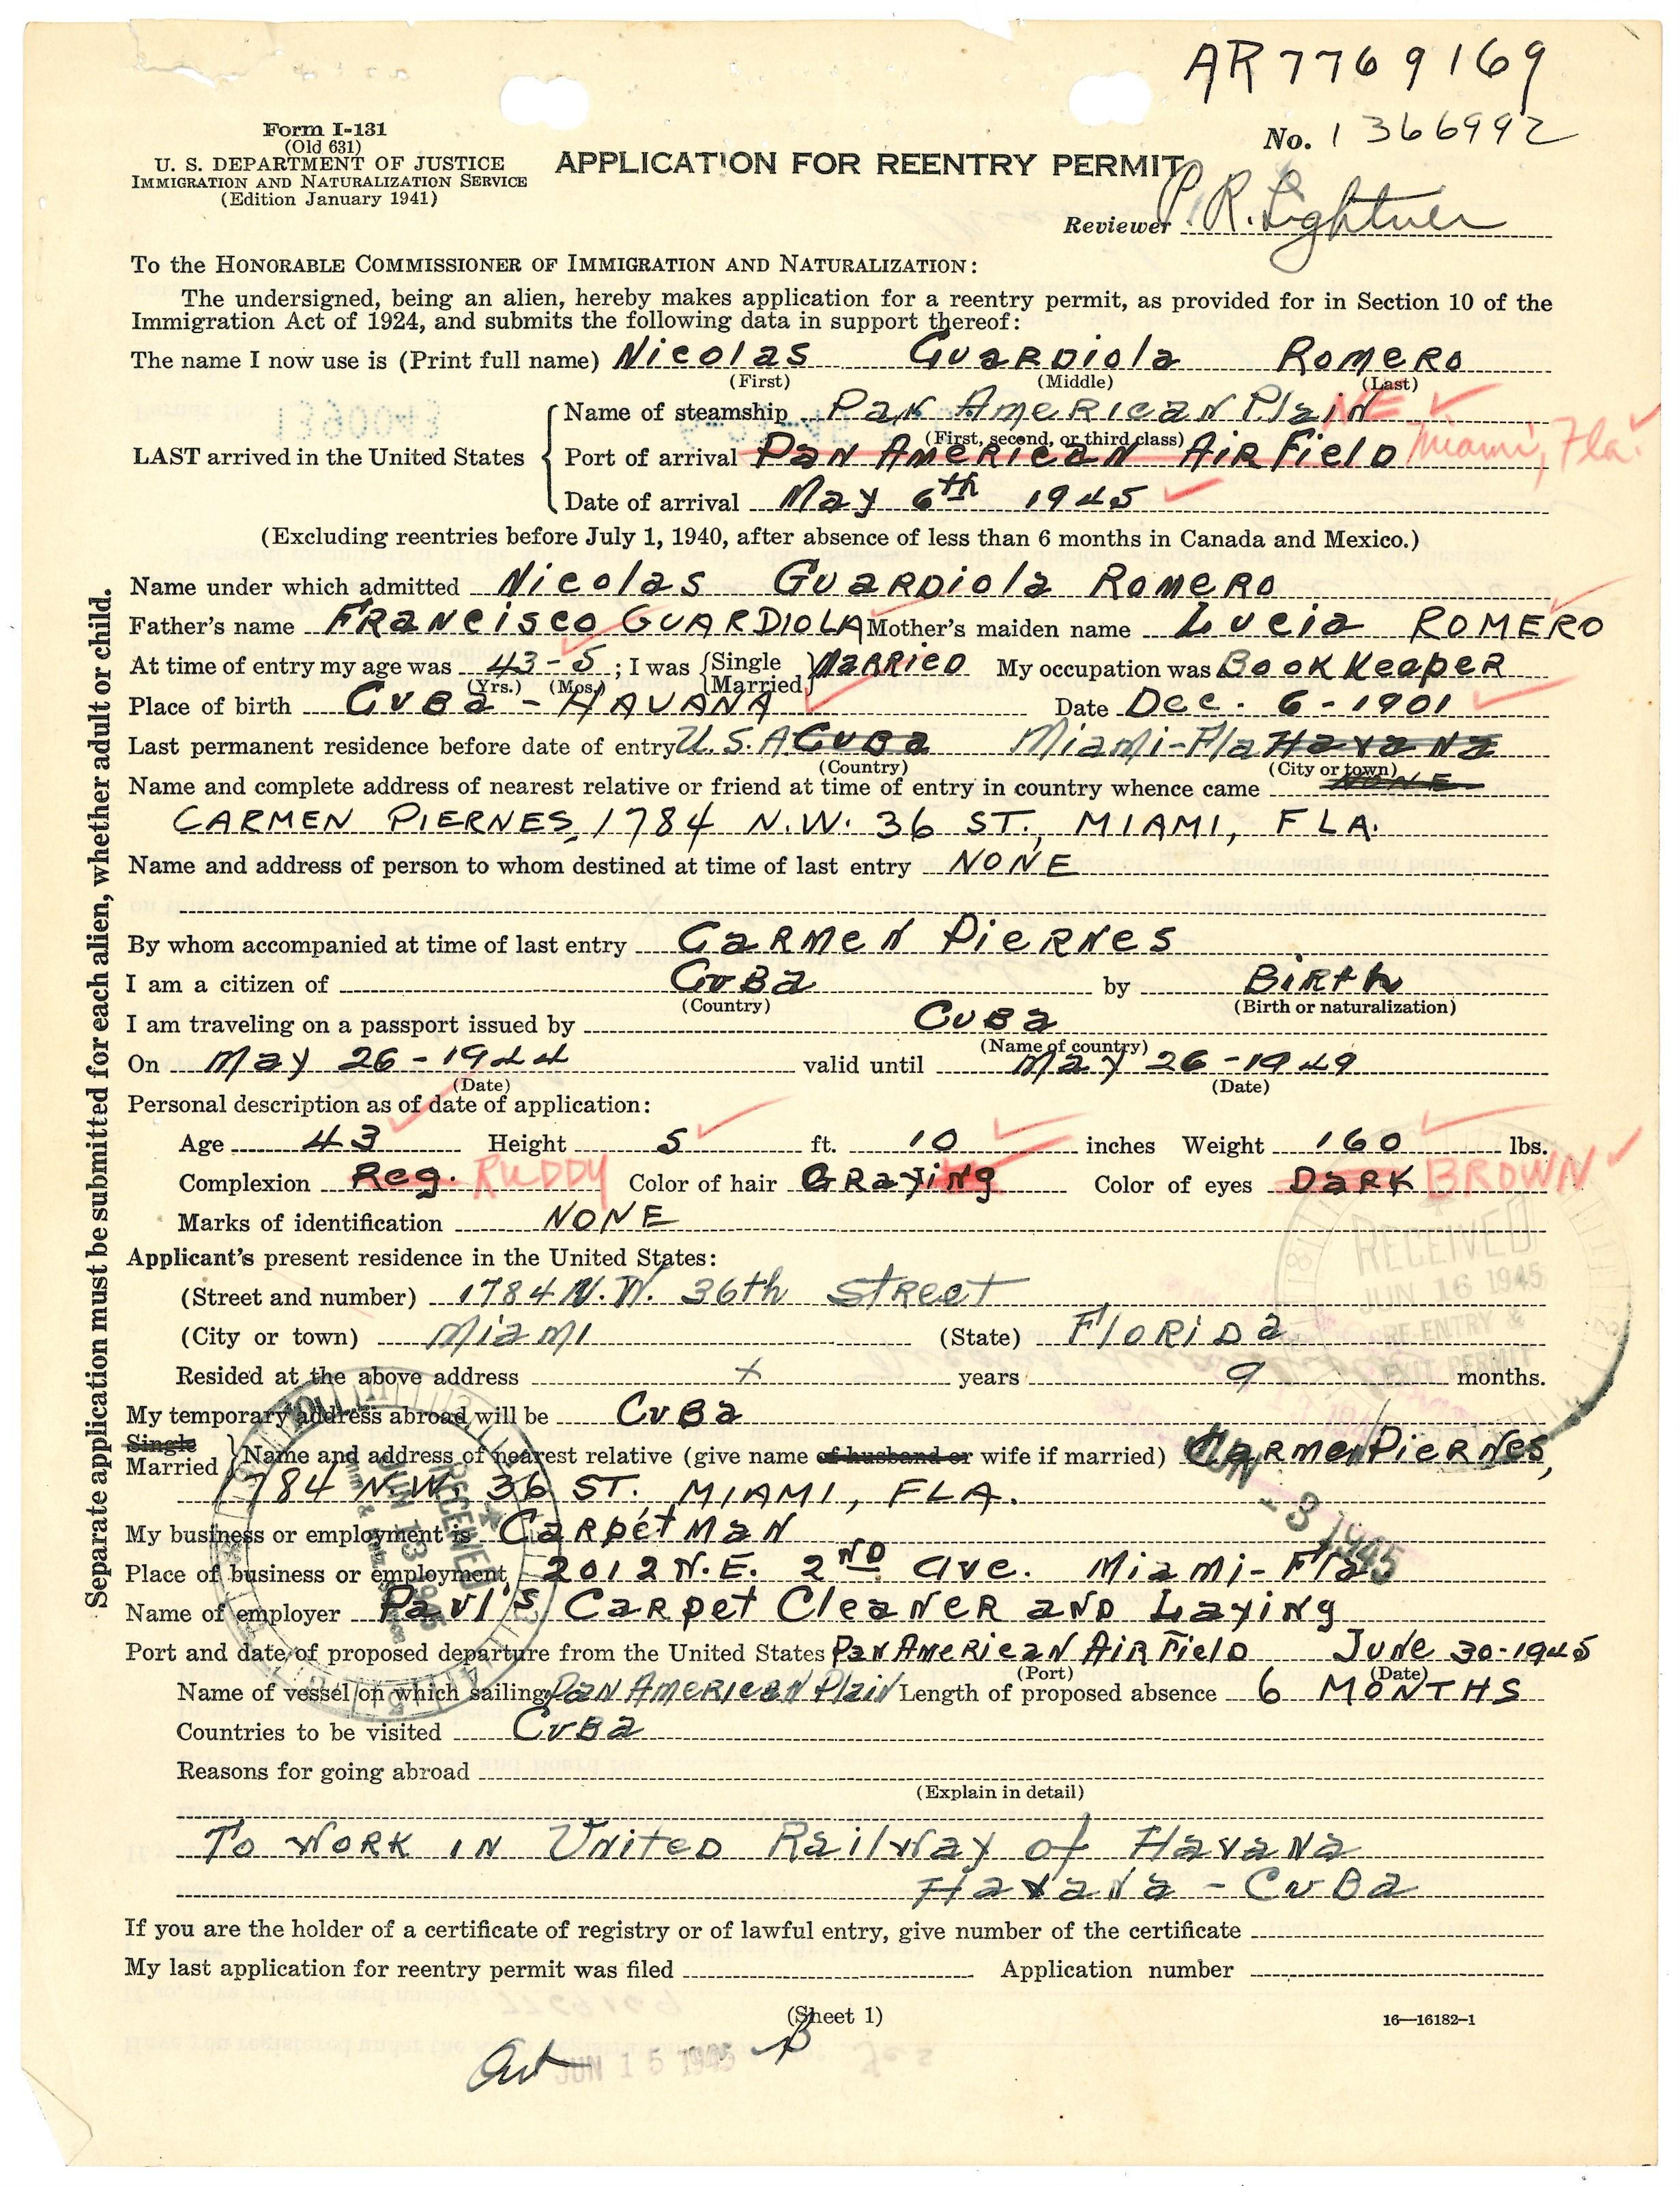 AR 7769169
Form I-131
(Old 631)
U. S. DEPARTMENT OF JUSTICE
IMMIGRATION AND NATURALIZATION SERVICE
(Edition January 1941)
APPLICATION FOR REENTRY PERMIT
No. 1366992
Reviewer P. R. Lightner
To the HONORABLE COMMISSIONER OF IMMIGRATION AND NATURALIZATION:
The undersigned, being an alien, hereby makes application for a reentry permit, as provided for in Section 10 of the
Immigration Act of 1924, and submits the following data in support thereof:
The name I now use is (Print full name) Nicolas Guardiola Romero
(First) (Middle) (Last)
LAST arrived in the United States
Name of steamship Pan American Plain NE
(First, second, or third class)
Port of arrival Pan American Air Field Miami, Fla.
Date of arrival May 6th 1945
(Excluding reentries before July 1, 1940, after absence of less than 6 months in Canada and Mexico.)
Name under which admitted Nicolas Guardiola Romero
Father's name Francisco GUARDIOLA Mother's maiden name Lucia ROMERO
At time of entry my age was 43-5; I was {Single Married} Married My occupation was BookKeeper
(Yrs.) (Mos.)
Place of birth Cuba - HAVANA Date Dec. 6-1901
Last permanent residence before date of entry U.S.A Cuba Miami-Fla Havana
(Country) (City or town)
Name and complete address of nearest relative or friend at time of entry in country whence came NONE
CARMEN PIERNES, 1784 N.W. 36 ST., MIAMI, FLA.
Name and address of person to whom destined at time of last entry NONE
By whom accompanied at time of last entry Carmen Piernes
I am a citizen of Cuba by Birth
(Country) (Birth or naturalization)
I am traveling on a passport issued by Cuba
(Name of country)
On May 26-1944 valid until May 26-1949
(Date) (Date)
Personal description as of date of application:
Age 43 Height 5 ft. 10 inches Weight 160 lbs.
Complexion Reg. RUDDY Color of hair Graying Color of eyes Dark BROWN
Marks of identification NONE
Applicant's present residence in the United States:
(Street and number) 1784 N.W. 36th Street
(City or town) Miami (State) Florida
Resided at the above address x years 9 months.
My temporary address abroad will be Cuba
Single
Married
Name and address of nearest relative (give name of husband or wife if married) Carmen Piernes,
1784 N.W. 36 ST. MIAMI, FLA.
My business or employment is Carpet Man
Place of business or employment 2012 N.E. 2ND ave. Miami-Fla
Name of employer Paul's Carpet Cleaner and Laying
Port and date of proposed departure from the United States Pan American Air Field June 30-1945
(Port) (Date)
Name of vessel on which sailing Pan American Plain Length of proposed absence 6 MONTHS
Countries to be visited Cuba
Reasons for going abroad
(Explain in detail)
To work in United Railway of Havana
Havana - Cuba
If you are the holder of a certificate of registry or of lawful entry, give number of the certificate
My last application for reentry permit was filed Application number
(Sheet 1)
16—16182-1
JUN 15 1945
Separate application must be submitted for each alien, whether adult or child.
RECEIVED
JUN 16 1945
RE-ENTRY &
EXIT PERMIT
JUN - 8 1945
RECEIVED
JUN 13 1945